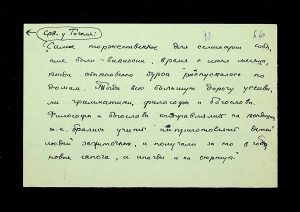 Срв. у Гоголя:
10 66
"Самое торжественное для семинарии собы-
тие было – вакансии, время с июня месяца,
когда обыкновенно бурса распускалась по
домам. Тогда всю большую дорогу усеива-
ли грамматики, философы и богословы.
Философы и богословы отправлялись на кондиции,
т.е. брались учить или приготовлять детей
людей зажиточных, и получали за то в год
новые сапоги, а иногда и на сюртук."